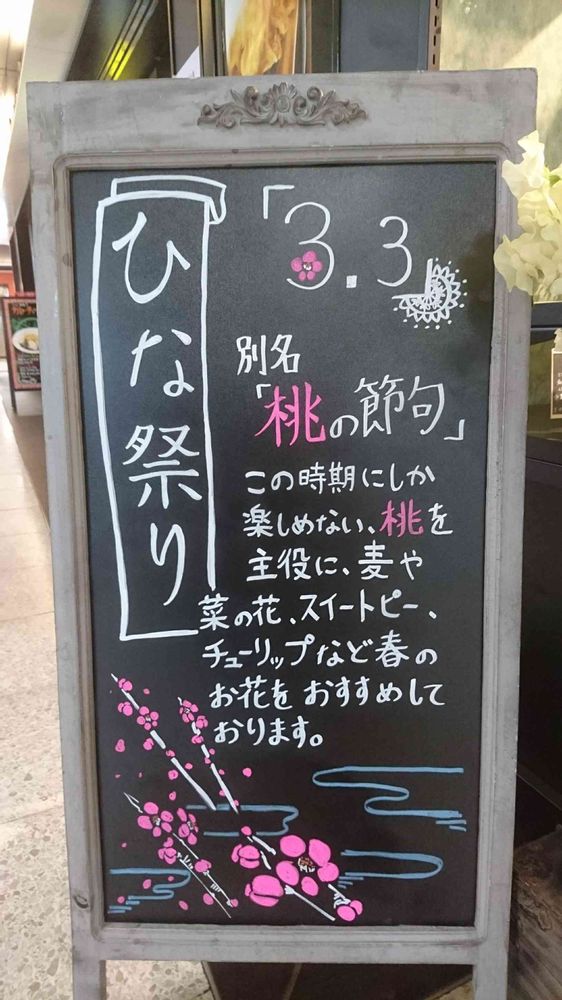 ひな祭り
「3.3」
別名
「桃の節句」
この時期にしか
楽しめない、桃を
主役に、麦や
菜の花、スイートピー、
チューリップなど春の
お花をおすすめして
おります。